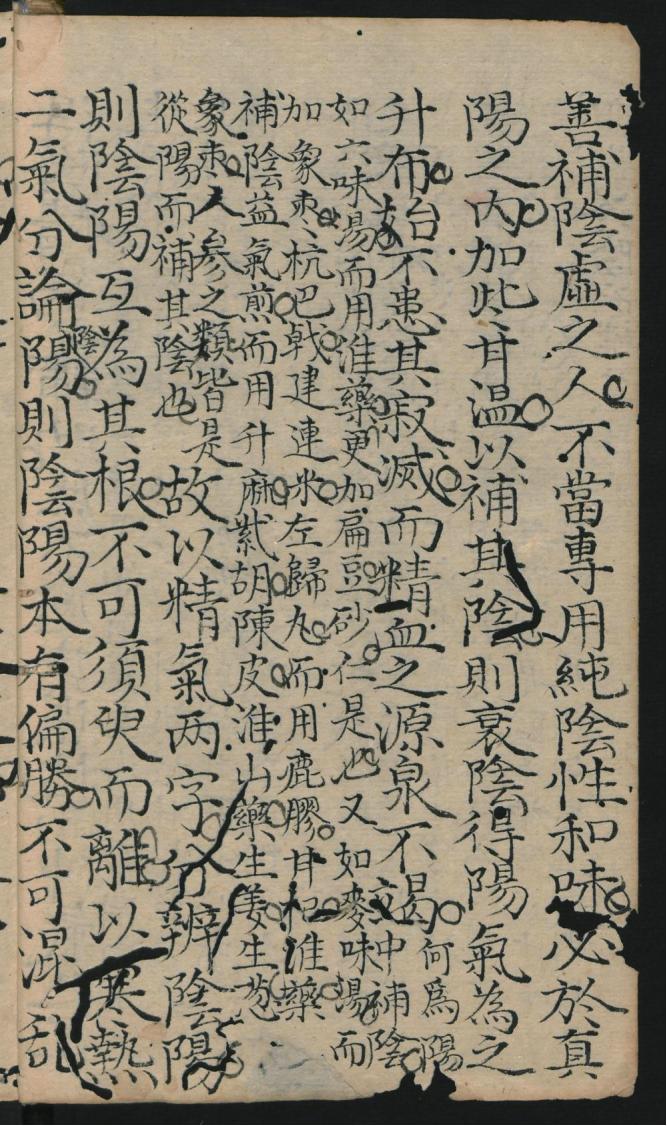 善補陰虛之人不當專用純陰性和味必於真
陽之內加此甘温以補其陰則衰陰得陽氣為之
升布始不患其寂滅而精血之源泉不竭何爲陽
中補陰
如六味湯而用淮藥更加扁豆砂仁是也又如麥味湯而
加象枣杭巴戟建連米左歸丸而用鹿膠甘和淮藥
補陰益氣煎而用升麻紫胡陳皮淮山藥生姜生葱
象枣人參之類皆是
從陽而補其陰也
故以精氣两字分辨陰陽
則陰陽互為其根不可須臾而離以寒熱
二氣分論陰陽則陰陽本有偏勝不可混乱